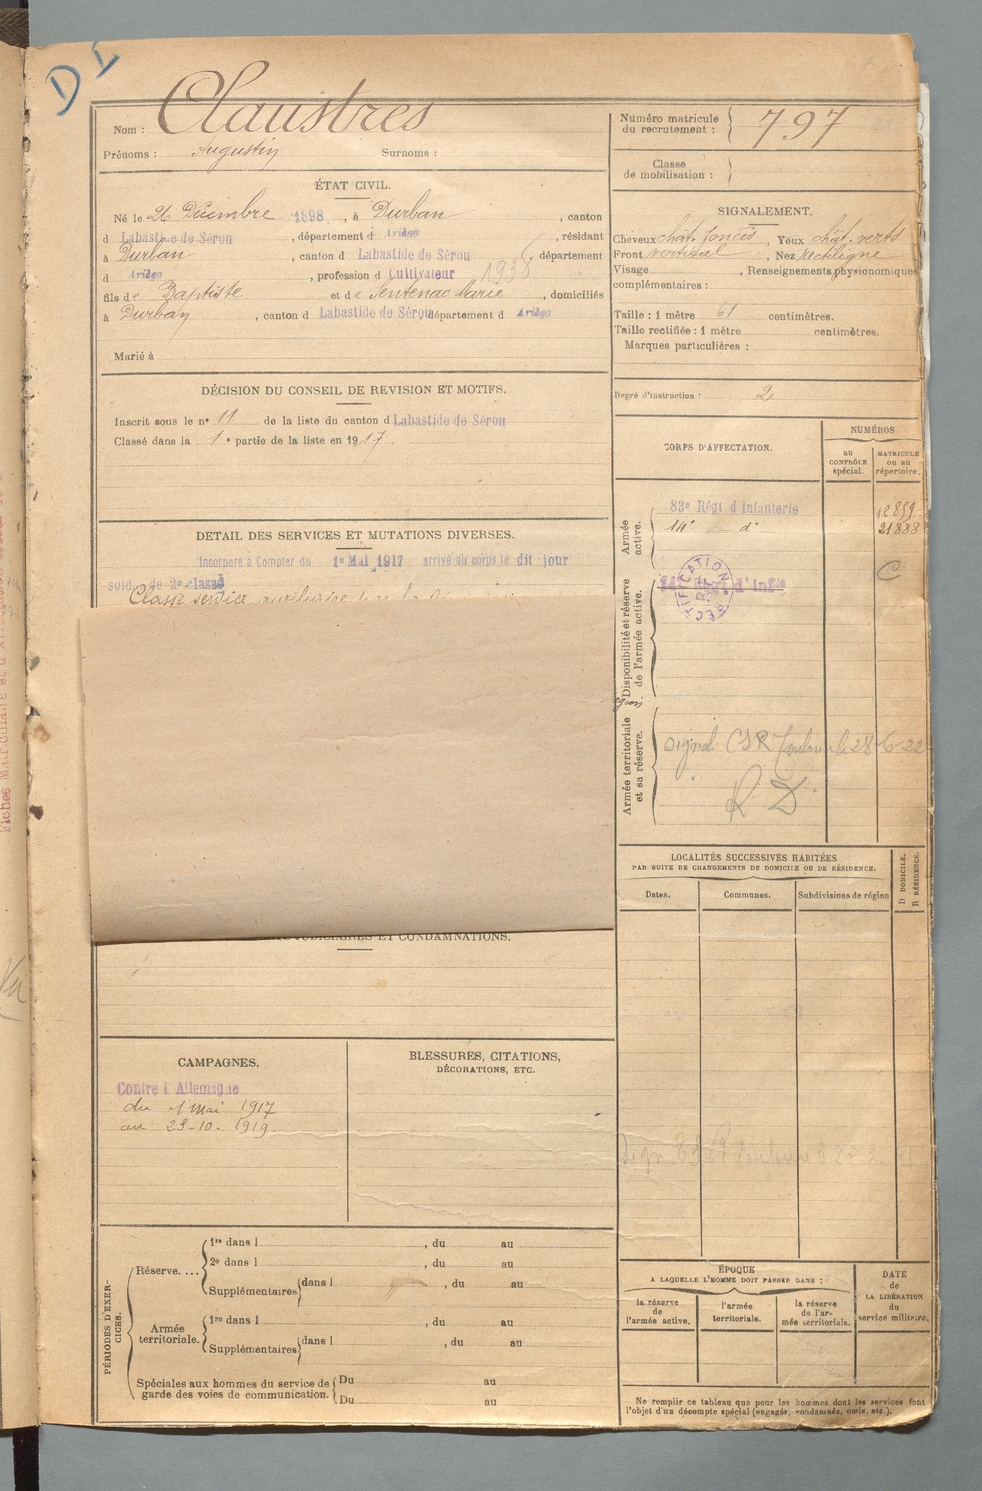 D
Nom : Claustres
Prénoms : Augustin Surnoms :
ÉTAT CIVIL.
Né le 26 Décembre 1898, à Durban, canton
d Labastide de Sérou, département d Ariège, résidant
à Durban, canton d Labastide de Sérou, département
d Ariège, profession d Cultivateur 1938
fils de Baptiste et de Sentenac Marie, domiciliés
à Durban, canton d Labastide de Sérou département d Ariège
Marié à
DÉCISION DU CONSEIL DE REVISION ET MOTIFS.
Inscrit sous le n° 11 de la liste du canton d Labastide de Sérou
Classé dans la 1e partie de la liste en 1917.
DETAIL DES SERVICES ET MUTATIONS DIVERSES.
Incorporé à Compter du 1er Mai 1917 arrivé au corps le dit jour
sold. de 2e classe
Classé service auxiliaire
JUDICIAIRES ET CONDAMNATIONS.
CAMPAGNES.
Contre l'Allemagne
du 1 mai 1917
au 23-10-1919.
BLESSURES, CITATIONS,
DÉCORATIONS, ETC.
PÉRIODES D'EXER-
CICES.
Réserve....
1re dans l , du au
2e dans l , du au
Supplémentaires dans l , du au
Armée
territoriale.
1re dans l , du au
Supplémentaires dans l , du au
Spéciales aux hommes du service de
garde des voies de communication.
Du au
Du au
Numéro matricule
du recrutement : 797
Classe
de mobilisation :
SIGNALEMENT.
Cheveux chât. foncés, Yeux chât. verts
Front vertical, Nez rectiligne
Visage , Renseignements physionomiques
complémentaires :
Taille : 1 mètre 61 centimètres.
Taille rectifiée : 1 mètre centimètres.
Marques particulières :
Degré d'instruction : 2
CORPS D'AFFECTATION.
NUMÉROS
AU
CONTRÔLE
spécial.
MATRICULE
ou au
répertoire.
Armée
active.
83e Régt d'Infanterie 12859
14e d° 21888
C
Disponibilité et réserve
de l'armée active.
Régt d'Infie
RECTIFICATION
Armée territoriale
et sa réserve.
Signal. CSR Toulouse le 28-6-22
R D
LOCALITÉS SUCCESSIVES HABITÉES
PAR SUITE DE CHANGEMENTS DE DOMICILE OU DE RÉSIDENCE.
D DOMICILE.
R RÉSIDENCE.
Dates. Communes. Subdivisions de région
ÉPOQUE
A LAQUELLE L'HOMME DOIT PASSER DANS :
la réserve
de
l'armée active.
l'armée
territoriale.
la réserve
de l'ar-
mée territoriale.
DATE
de
LA LIBÉRATION
du
service militaire.
Ne remplir ce tableau que pour les hommes dont les services font
l'objet d'un décompte spécial (engagés, condamnés, omis, etc.).